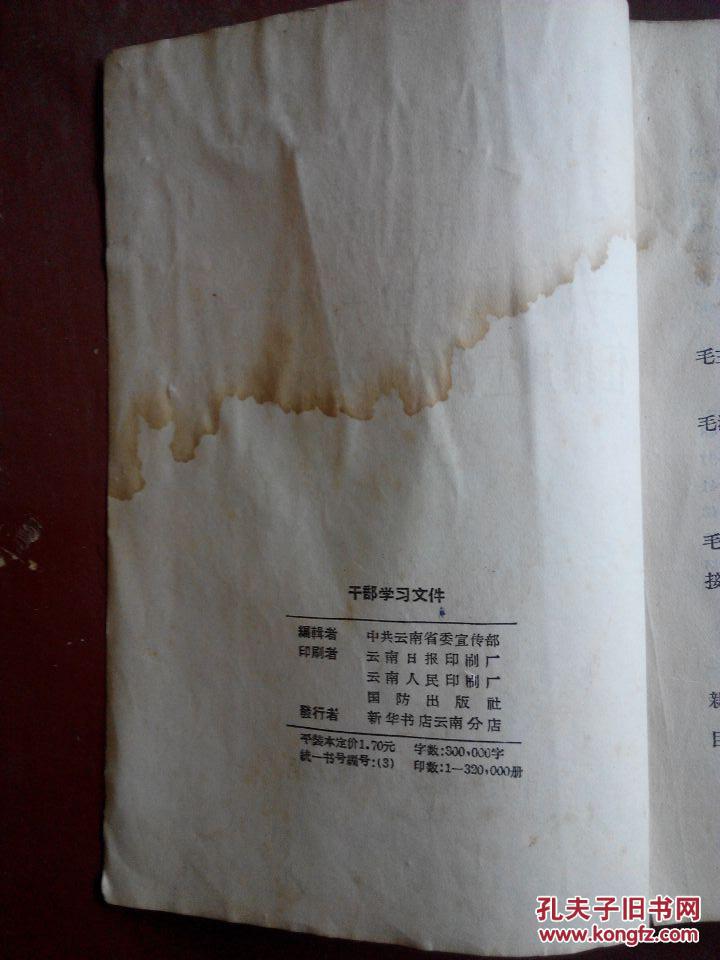 干部学习文件
編輯者 中共云南省委宣传部
印刷者 云南日报印刷厂
云南人民印制厂
国防出版社
發行者 新华书店云南分店
平装本定价1.70元 字数:300,000字
統一书号編号:(3) 印数:1—320,000册
毛
毛
毛
接
新
孔夫子旧书网
www.kongfz.com